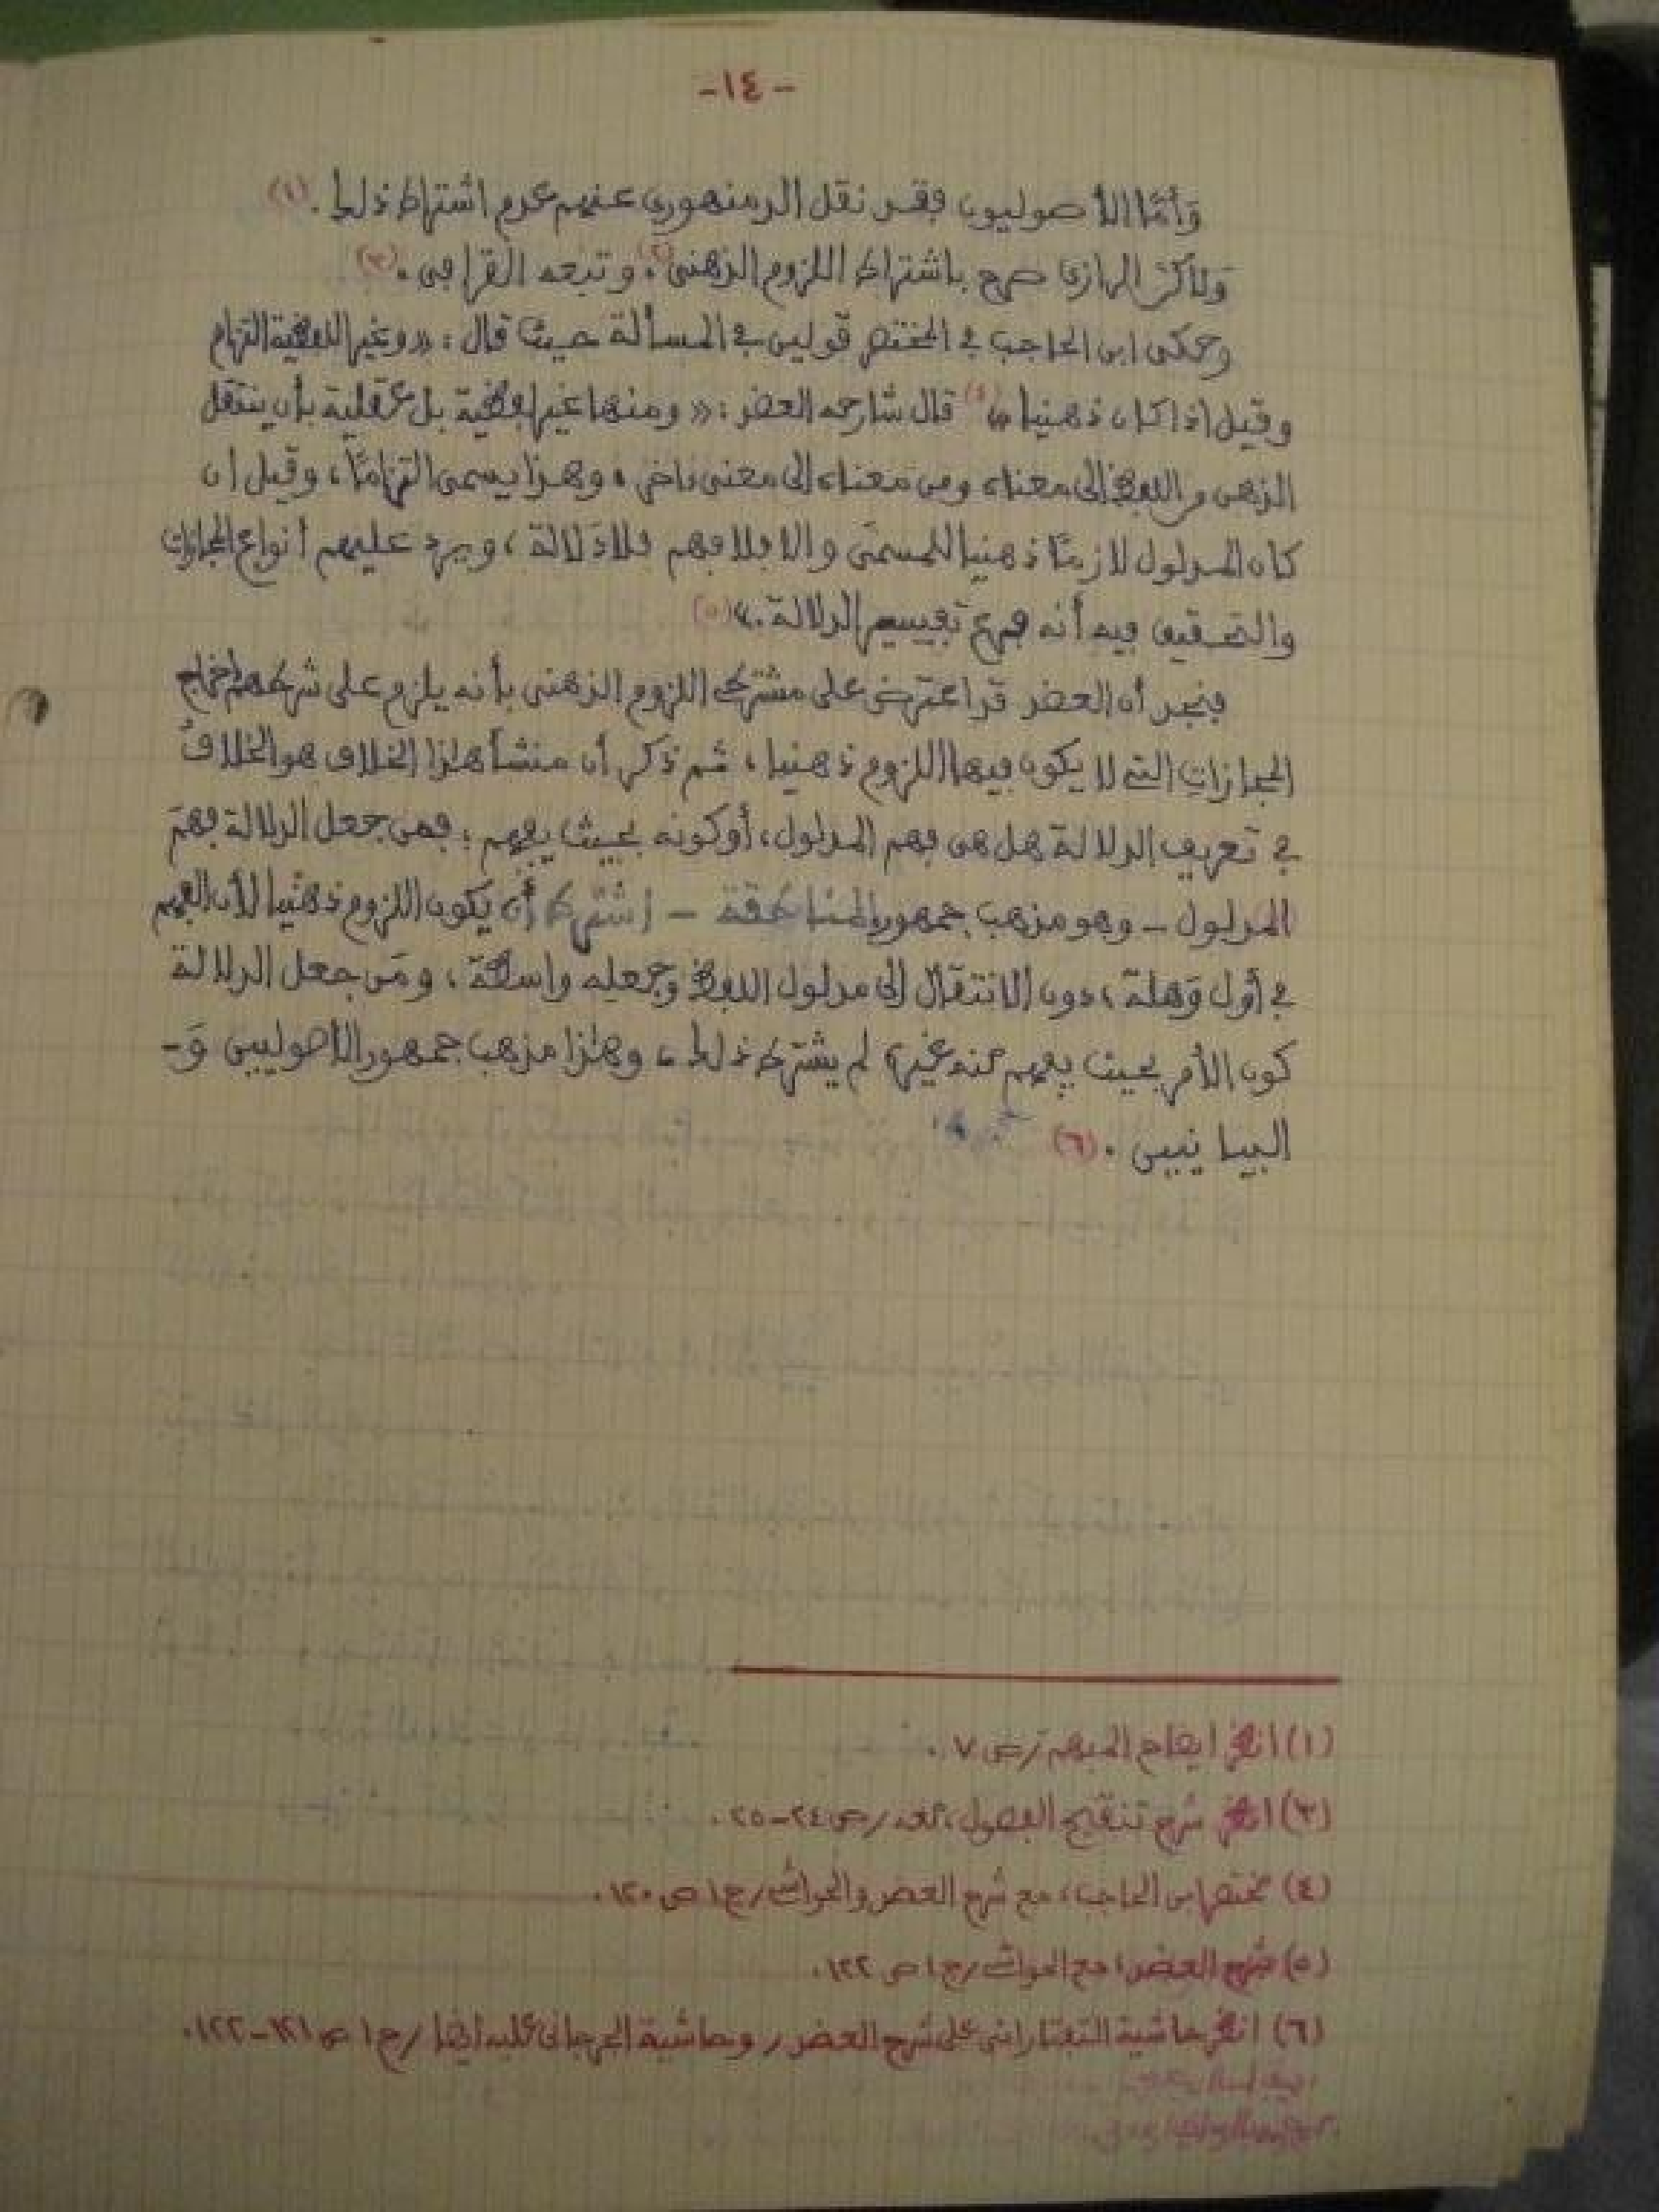 -١٤-
وَأَمَّا الأصوليون فقد نقل الدمنهوري عنهم عدم اشتراط ذلك . (١)
وَلاكنّ الرازي صرح باشتراط اللزوم الذهني (٢)، وتبعه القرافي . (٣)
وحكى ابن الحاجب في المختصر قولين في المسألة حيث قال : « وغير اللفظية التزام
وقيل إذا كان ذهنيا » (٤) قال شارحه العضد : « ومنها غير لفظية بل عقلية بأن ينتقل
الذهن من اللفظ إلى معناه ومن معناه إلى معنى ءاخر ، وهذا يسمى التزامًا ، وقيل إن
كان المدلول لازمًا ذهنيا للمسمى وإلا فلا فهم فلا دَلالة ، ويرد عليهم أنواع المجازات
والتحقيق فيه أنه فرع تفسير الدلالة . » (٥)
فنجد أن العضد قد اعترض على مشترط اللزوم الذهني بأنه يلزم على شرطهم إخراج
المجازات التي لا يكون فيها اللزوم ذهنيا ، ثم ذكر أن منشأ هذا الخلاف هو الخلافُ
في تعريف الدلالة هل هي فهم المدلول، أو كونه بحيث يفهم ؛ فمن جعل الدلالة فهمَ
المدلول - وهو مذهب جمهور المناطقة - اشترط أن يكون اللزوم ذهنيا لأن الفهم
في أول وَهلة ، دون الانتقال إلى مدلول اللفظ وجعله واسطة ، ومَن جعل الدلالة
كون الأمر بحيث يفهم منه غيره لم يشترط ذلك ، وهذا مذهب جمهور الأصوليين وَ-
البيانيين . (٦)
(١) انظر إيضاح المبهم / ص ٧ .
(٣) انظر شرح تنقيح الفصول ، له / ص ٢٤-٢٥ .
(٤) مختصر ابن الحاجب ، مع شرح العضد والحواشي / ج ١ ص ١٢٠ .
(٥) شرح العضد ، مع الحواشي / ج ١ ص ١٢٢ .
(٦) انظر حاشية التفتازاني على شرح العضد / وحاشية الجرجاني عليه أيضا / ج ١ ص ١٢١-١٢٢ .